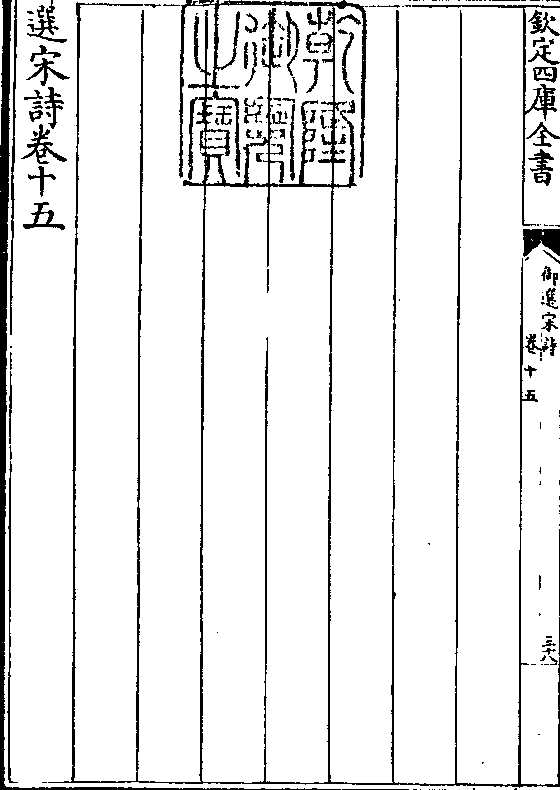 欽定四庫全書
御選宋詩
卷十五
三十八
乾隆御覽之寶
選宋詩卷十五